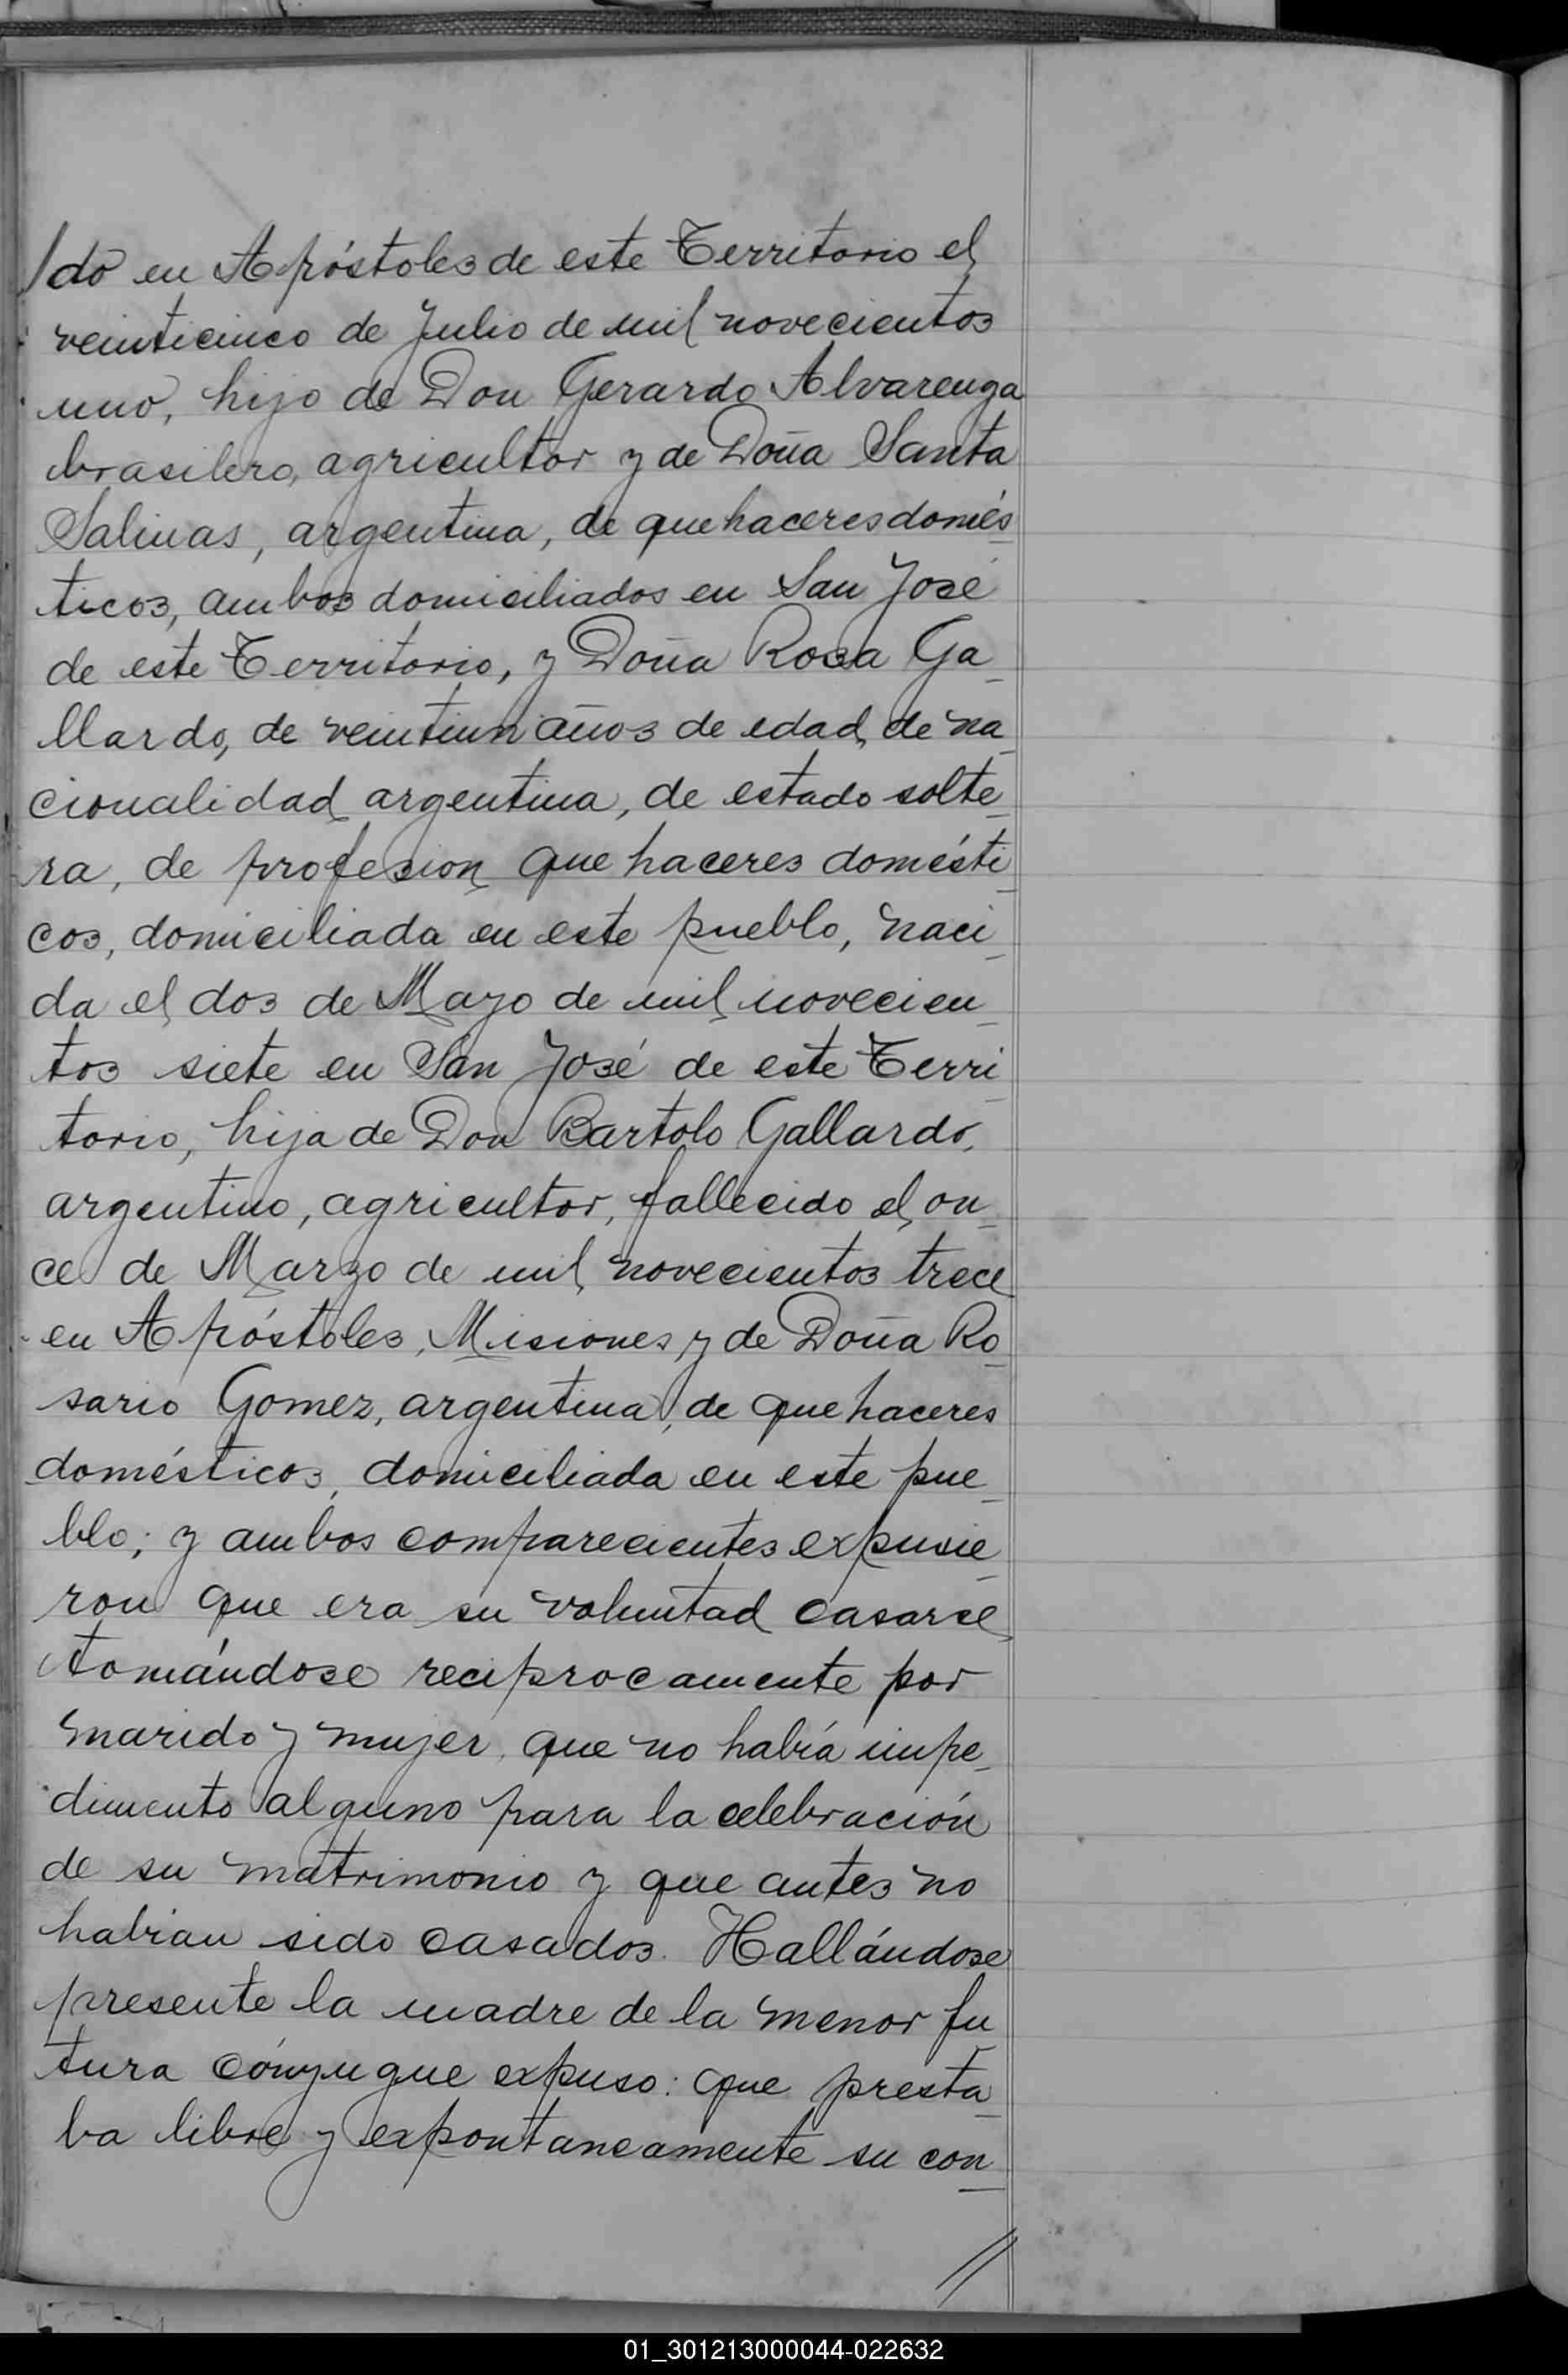 /do en Apóstoles de este Territorio el
veinticinco de Julio de mil novecientos
uno, hijo de Don Gerardo Alvarenga
brasilero, agricultor y de Doña Santa
Salinas, argentina, de quehaceres domés
ticos, ambos domiciliados en San José
de este Territorio, y Doña Rosa Ga_
llardo, de veintiun años de edad, de na_
cionalidad argentina, de estado solte_
ra, de profesion quehaceres domésti_
cos, domiciliada en este pueblo, naci_
da el dos de Mayo de mil novecien_
tos siete en San José de este Terri_
torio, hija de Don Bartolo Gallardo,
argentino, agricultor, fallecido el on_
ce de Marzo de mil novecientos trece
en Apóstoles, Misiones y de Doña Ro_
sario Gomez, argentina, de quehaceres
domésticos, domiciliada en este pue_
blo; y ambos comparecientes expusie_
ron que era su voluntad casarse,
tomándose reciprocamente por
marido y mujer, que no había impe_
dimento alguno para la celebración
de su matrimonio y que antes no
habian sido casados. Hallándose
presente la madre de la menor fu_
tura cónyugue expuso: que presta_
ba libre y expontaneamente su con_
//
01_301213000044-022632